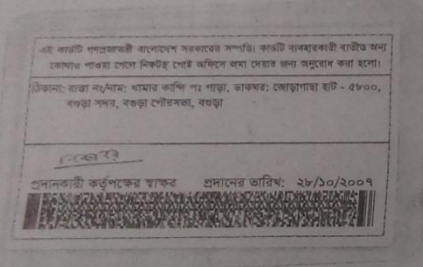 এই কার্ডটি গণপ্রজাতন্ত্রী বাংলাদেশ সরকারের সম্পত্তি। কার্ডটি ব্যবহারকারী ব্যতীত অন্য
কোথাও পাওয়া গেলে নিকটস্থ পোস্ট অফিসে জমা দেবার জন্য অনুরোধ করা হলো।
ঠিকানা: রাস্তা নং/নাম: খামার কান্দি পঃ পাড়া, ডাকঘর: জোড়গাছা হাট - ৫৮০০,
বগুড়া সদর, বগুড়া পৌরসভা, বগুড়া
প্রদানকারী কর্তৃপক্ষের স্বাক্ষর প্রদানের তারিখ: ২৮/১০/২০০৭